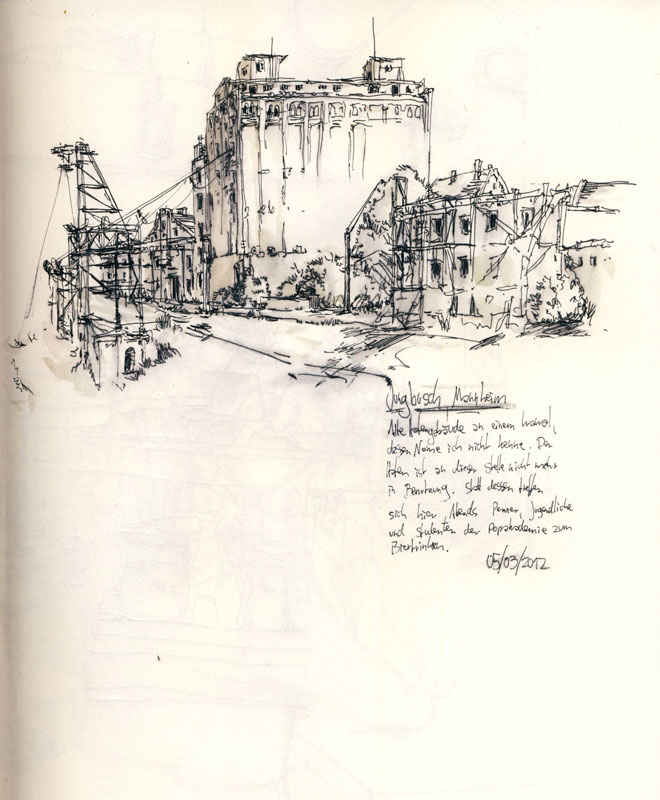 Jungbusch Mannheim
Alte Hafengebäude an einem Kanal,
dessen Name ich nicht kenne. Der
Hafen ist an dieser Stelle nicht mehr
in Benutzung. Statt dessen treffen
sich hier Abends Penner, Jugendliche
und Studenten der Popakademie zum
Biertrinken.
05/03/2012